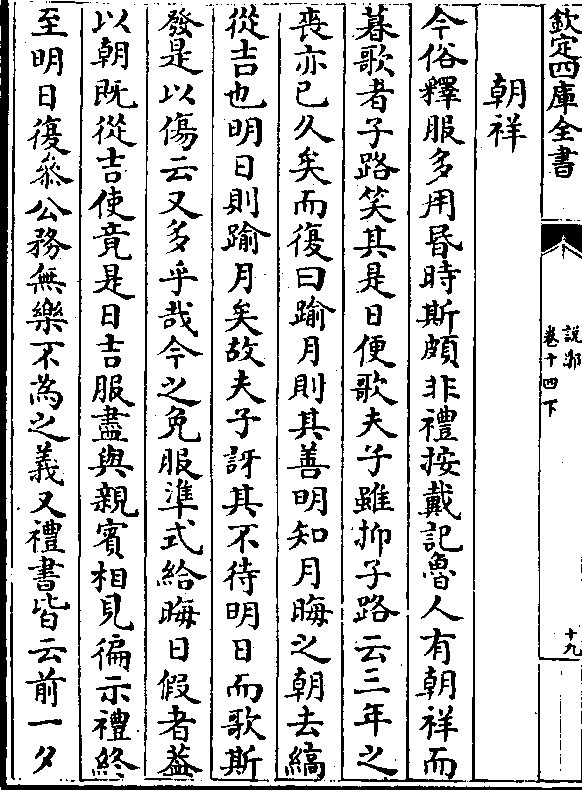 欽定四庫全書
說郛
卷十四下
十九
朝祥
今俗釋服多用昏時斯頗非禮按戴記魯人有朝祥而
暮歌者子路笑其是日便歌夫子雖抑子路云三年之
喪亦已久矣而復曰踰月則其善明知月晦之朝去縞
從吉也明日則踰月矣故夫子訝其不待明日而歌斯
發是以傷云又多乎哉今之免服準式給晦日假者葢
以朝既從吉使竟是日吉服盡與親賓相見徧示禮終
至明日復叅公務無樂不為之義又禮書皆云前一夕